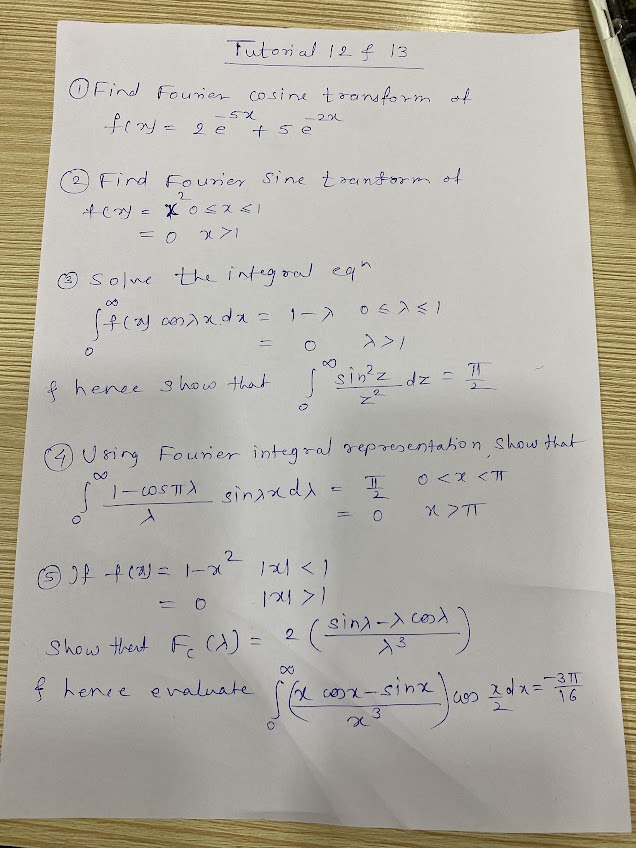 Tutorial 12 & 13
① Find Fourier cosine transform of
f(x) = 2 e^{-5x} + 5 e^{-2x}
② Find Fourier Sine transform of
f(x) = x² 0 ≤ x ≤ 1
= 0 x > 1
③ Solve the integral eqⁿ
∫₀^∞ f(x) cos λx dx = 1 - λ 0 ≤ λ ≤ 1
= 0 λ > 1
& hence show that ∫₀^∞ sin²z / z² dz = π/2
④ Using Fourier integral representation, show that
∫₀^∞ (1 - cos πλ) / λ sin λx dλ = π/2 0 < x < π
= 0 x > π
⑤ If f(x) = 1 - x² |x| < 1
= 0 |x| > 1
Show that F_c(λ) = 2 ( (sin λ - λ cos λ) / λ³ )
& hence evaluate ∫₀^∞ ( (x cos x - sin x) / x³ ) cos x/2 dx = -3π/16